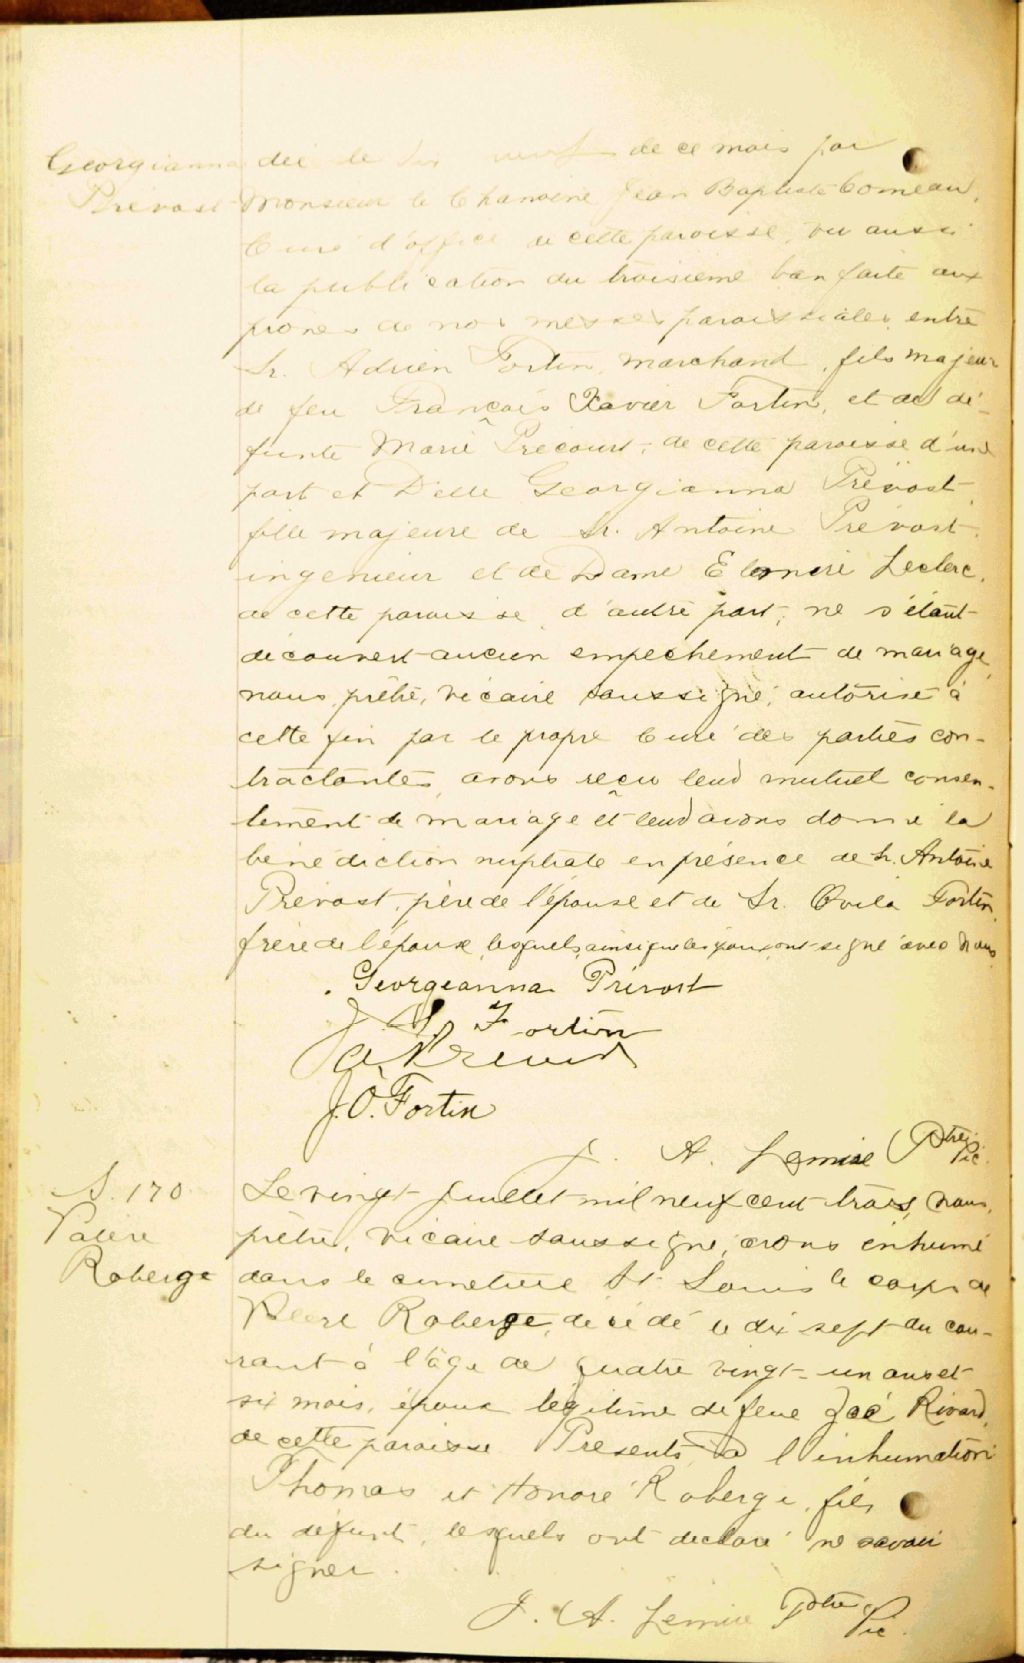 Georgianna
Prevost
dée le dix neuf de ce mois par
Monsieur le Chanoine Jean Baptiste Comeau,
Curé d'office de cette paroisse, vu aussi
la publication du troisième ban faite aux
prônes de nos messes paroissiales, entre
Sr. Adrien Fortin, marchand, fils majeur
de feu François Xavier Fortin, et de dé-
funte Marie Précourt, de cette paroisse d'une
part et Delle Georgianna Prévost
fille majeure de Sr. Antoine Prévost,
ingenieur et de Dame Leclerc,
de cette paroisse, d'autre part, ne s'étant
découvert aucun empechement de mariage,
nous, prêtre, vicaire soussigné, autorisé à
cette fin par le propre Curé des parties con-
tractantes, avons reçu leur mutuel consen-
tement de mariage et leur avons donné la
bénédiction nuptiale en présence de Sr. Antoine
Prévost, père de l'épouse et de Sr. Ovila Fortin,
frère de l'époux, lesquels, ainsi que les époux, ont signé avec nous
Georgeanna Prévost
Fortin
J. O. Fortin
J. A. Lemire Ptre Vic.
S. 170
Valère
Roberge
Le vingt Juillet mil neuf cent trois, nous,
prêtre, vicaire soussigné, avons inhumé
dans le cimetière St. Louis le corps de
Valère Roberge, décédé le dix sept du cou-
rant à l'âge de quatre vingt-un ans et
six mois, époux légitime de feue Zoé Rivard,
de cette paroisse. Presents à l'inhumation
Thomas et Honoré Roberge, fils
du défunt, lesquels ont déclaré ne savoir
signer.
J. A. Lemire Ptre Vic.